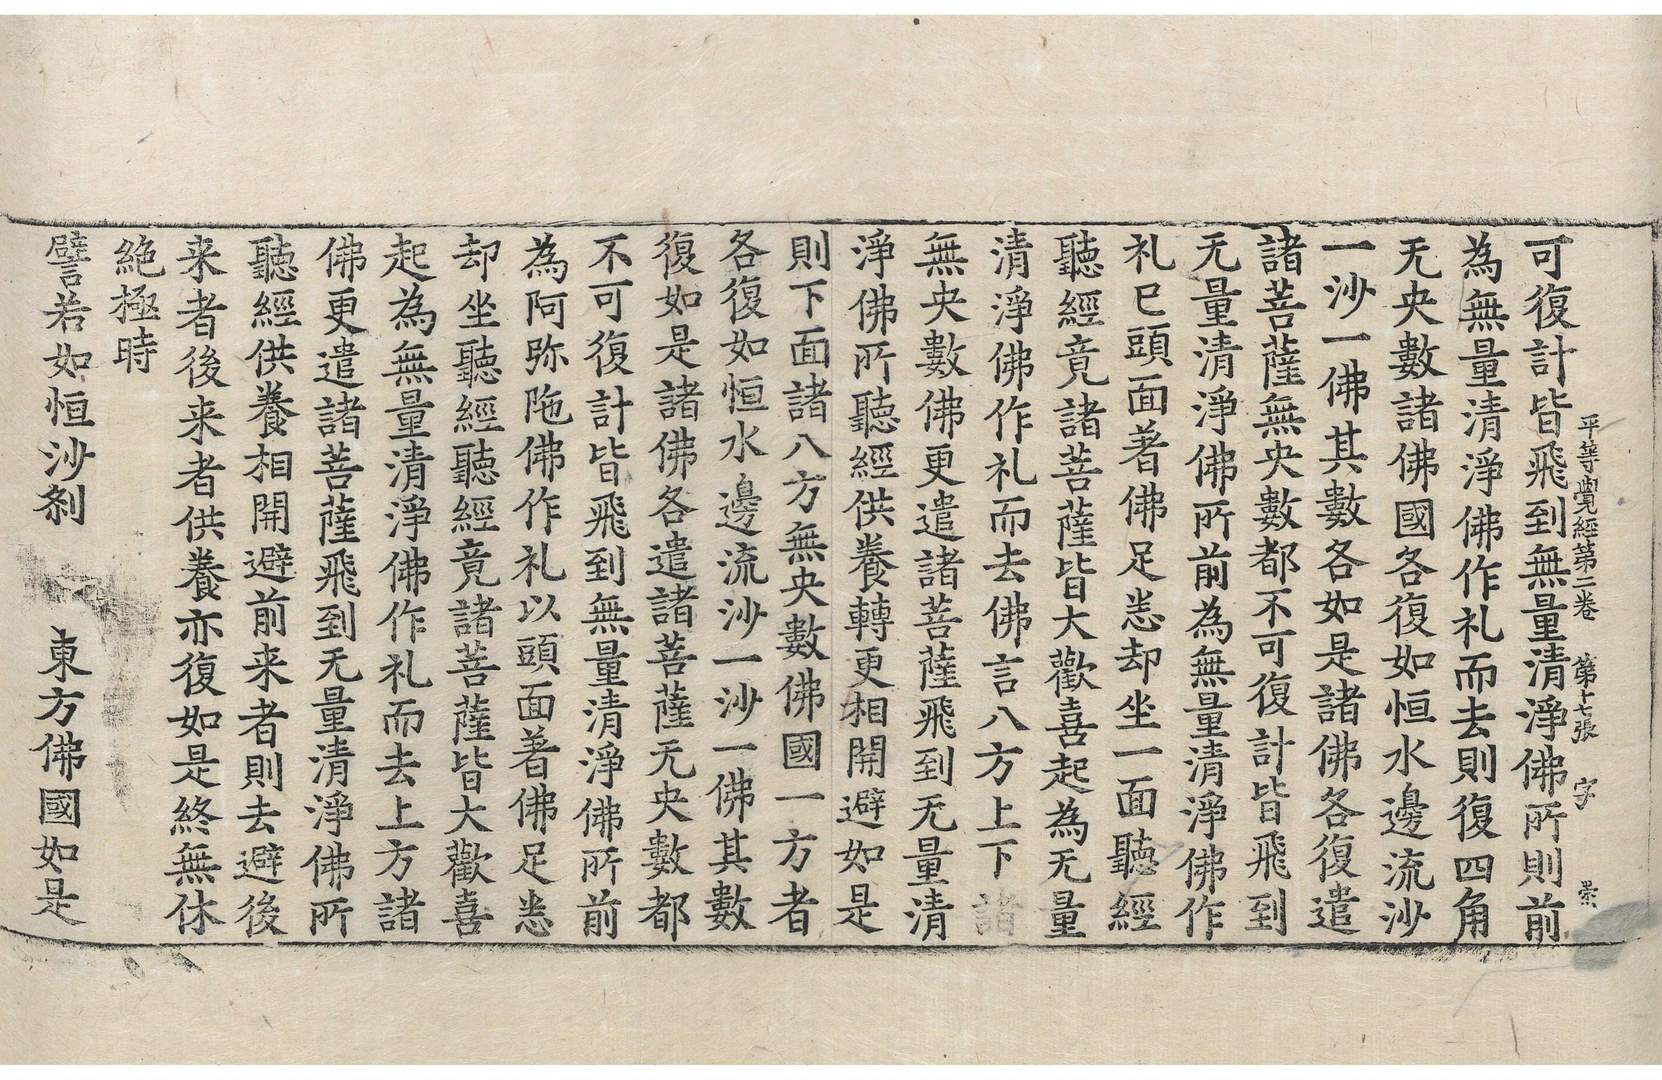 平等覺經第二卷 第十七張 字 景
可復計皆飛到無量清淨佛所則前
為無量清淨佛作礼而去則復四角
无央數諸佛國各復如恒水邊流沙
一沙一佛其數各如是諸佛各復遣
諸菩薩無央數都不可復計皆飛到
无量清淨佛所前為無量清淨佛作
礼已頭面著佛足恙却坐一面聽經
聽經竟諸菩薩皆大歡喜起為无量
清淨佛作礼而去佛言八方上下諸
無央數佛更遣諸菩薩飛到无量清
淨佛所聽經供養轉更相開避如是
則下面諸八方無央數佛國一方者
各復如恒水邊流沙一沙一佛其數
復如是諸佛各遣諸菩薩无央數都
不可復計皆飛到無量清淨佛所前
為阿弥陁佛作礼以頭面著佛足恙
却坐聽經聽經竟諸菩薩皆大歡喜
起為無量清淨佛作礼而去上方諸
佛更遣諸菩薩飛到无量清淨佛所
聽經供養相開避前来者則去避後
来者後来者供養亦復如是終無休
絶極時
譬若如恒沙刹 東方佛國如是